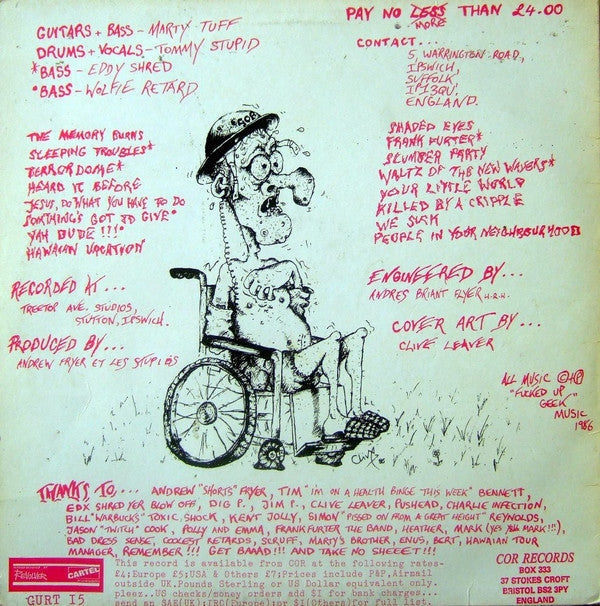 GUITARS + BASS - MARTY TUFF
DRUMS + VOCALS - TOMMY STUPID
*BASS - EDDY SHRED
•BASS - WOLFIE RETARD
PAY NO LESS THAN £4.00
MORE
CONTACT...
5, WARRINGTON ROAD,
IPSWICH,
SUFFOLK
IP1 3QU.
ENGLAND.
THE MEMORY BURNS
SLEEPING TROUBLES*
TERRORDOME*
HEARD IT BEFORE
JESUS, DO WHAT YOU HAVE TO DO
SOMTHING'S GOT TO GIVE•
YAH DUDE!!!•
HAWAIAN VACATION
SHADED EYES
FRANK FURTER*
SLUMBER PARTY
WALTZ OF THE NEW WAVERS*
YOUR LITTLE WORLD
KILLED BY A CRIPPLE
WE SUCK
PEOPLE IN YOUR NEIGHBOURHOOD
RECORDED AT...
TREETOP AVE. STUDIOS,
STUTTON, IPSWICH.
PRODUCED BY...
ANDREW FRYER ET LES STUPIDS
ENGINEERED BY...
ANDRES BRIANT FLYER H.R.H.
COVER ART BY...
CLIVE LEAVER
ALL MUSIC ©+℗
"FUCKED UP
GEEK"
MUSIC
1986
THANKS TO... ANDREW "SHORTS" FRYER, TIM "IM ON A HEALTH BINGE THIS WEEK" BENNETT,
EDX SHRED YER BLOW OFF, DIG P., JIM P., CLIVE LEAVER, PUSHEAD, CHARLIE INFECTION,
BILL "WARBUCK'S" TOXIC, SHOCK, KENT JOLLY, SIMON "PISSED ON FROM A GREAT HEIGHT" REYNOLDS,
JASON "TWITCH" COOK, POLLY AND EMMA, FRANKFURTER THE BAND, HEATHER, MARK (YES MARK!!!),
BAD DRESS SENSE, COOLEST RETARDS, SCRUFF, MARTY'S BROTHER, ENUS, BERT, HAWAIAN TOUR
MANAGER, REMEMBER!!! GET BAAAD!!! AND TAKE NO SHEEET!!!
REVOLVER
CARTEL
GURT 15
This record is available from COR at the following rates-
£4;Europe £5;USA & Others £7;Prices include P&P,Airmail
outside UK.Pounds Sterling or US Dollar equivalent only.
pleez..US checks/money orders add $1 for bank charges...
send an SAE(UK);IRC(Europe);or $1(Others)for full list
COR RECORDS
BOX 333
37 STOKES CROFT
BRISTOL BS2 3PY
ENGLAND